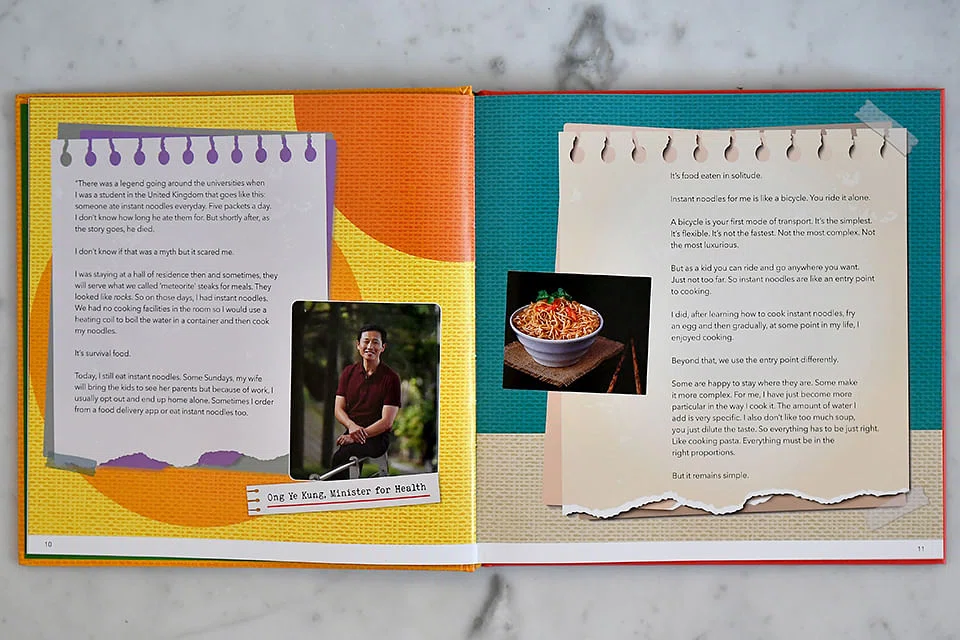 "There was a legend going around the universities when
I was a student in the United Kingdom that goes like this:
someone ate instant noodles everyday. Five packets a day.
I don't know how long he ate them for. But shortly after, as
the story goes, he died.
I don't know if that was a myth but it scared me.
I was staying at a hall of residence then and sometimes, they
will serve what we called 'meteorite' steaks for meals. They
looked like rocks. So on those days, I had instant noodles.
We had no cooking facilities in the room so I would use a
heating coil to boil the water in a container and then cook
my noodles.
It's survival food.
Today, I still eat instant noodles. Some Sundays, my wife
will bring the kids to see her parents but because of work, I
usually opt out and end up home alone. Sometimes I order
from a food delivery app or eat instant noodles too.
Ong Ye Kung, Minister for Health
10
It's food eaten in solitude.
Instant noodles for me is like a bicycle. You ride it alone.
A bicycle is your first mode of transport. It's the simplest.
It's flexible. It's not the fastest. Not the most complex. Not
the most luxurious.
But as a kid you can ride and go anywhere you want.
Just not too far. So instant noodles are like an entry point
to cooking.
I did, after learning how to cook instant noodles, fry
an egg and then gradually, at some point in my life, I
enjoyed cooking.
Beyond that, we use the entry point differently.
Some are happy to stay where they are. Some make
it more complex. For me, I have just become more
particular in the way I cook it. The amount of water I
add is very specific. I also don't like too much soup,
you just dilute the taste. So everything has to be just right.
Like cooking pasta. Everything must be in the
right proportions.
But it remains simple.
11